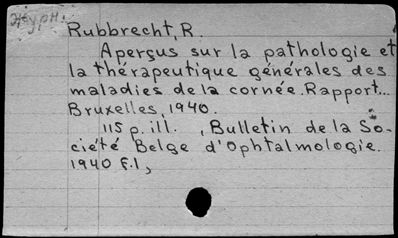 Rubbrecht, R.
Aperçus sur la pathologie et
la thérapeutique générales des
maladies de la cornée. Rapport...
Bruxelles, 1940.
115 p. ill. , Bulletin de la So-
ciété Belge d'Ophtalmologie.
1940 f.1,